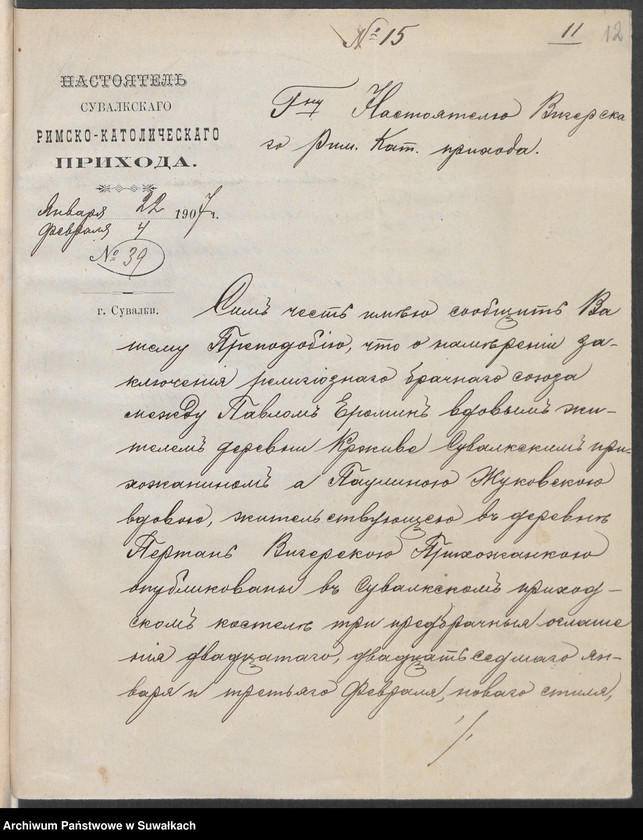 № 15
11
12
НАСТОЯТЕЛЬ
СУВАЛКСКАГО
РИМСКО-КАТОЛИЧЕСКАГО
ПРИХОДА.
Января 22 1907 г.
Февраля 4
№ 39
г. Сувалки.
Гну Настоятелю Вигерска
го Рим. Кат. прихода.
Симъ честь имѣю сообщить Ва
шему Преподобію, что о намѣреніи за-
ключенія религіознаго брачнаго союза
между Павломъ Ерюминъ вдовымъ жи-
телемъ деревни Крживе Сувалкскимъ при-
хожаниномъ а Паулиною Жуковскою
вдовою, жительствующею въ деревнѣ
Пертанѣ Вигерскою Прихожанкою
опубликованы въ Сувалкскомъ приход-
скомъ костелѣ три предбрачныя оглаше
нія двадцатаго, двадцать седмаго ян-
варя и третьяго Февраля, новаго стиля,
./.
Archiwum Państwowe w Suwałkach